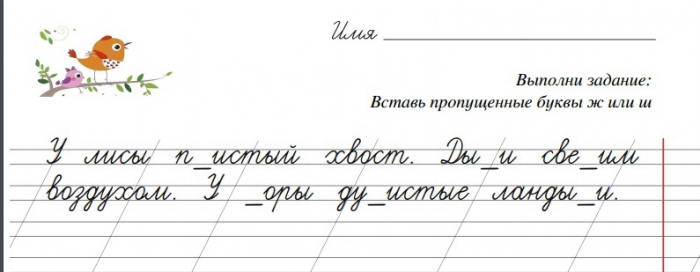 Имя
Выполни задание:
Вставь пропущенные буквы ж или ш
У лисы п_истый хвост. Ды_и све_им
воздухом. У _оры ду_истые ланды_и.